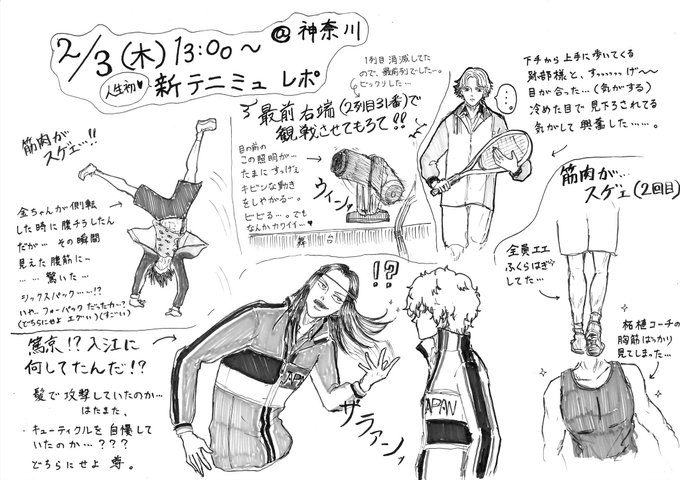 2/3(木)13:00〜 @神奈川
人生初♥
新テニミュ レポ
筋肉が
スゲェ!!
金ちゃんが側転
した時に腹チラしたん
だが… その瞬間
見えた腹筋に〜
…… 驚いた…
シックスパック……!?
いや、フォーパックだったか…?
(どちらにせよエグいい)(すごい)
最前右端(2列目31番)で
観戦させてもろて!!
1列目消滅してた
ので、最前列でした〜。
ビックリした…
目の前の
この照明が…
たまにすっげぇ
キビンな動き
をしやがる…。
ビビる…。でも
なんかカワイイ…♥
ウィンッ
舞台
…
下手から上手に歩いてくる
跡部様と、すっっっっっげ〜〜
目が合った…(気がする)
冷めた目で見下ろされてる
気がして興奮した……。
筋肉が…
スゲェ(2回目)
全員エエ
ふくらはぎ
してた…
柘植コーチの
胸筋ばっかり
見てしまった…
篤京!?入江に
何してたんだ!?
髪で攻撃していたのか…
はたまた、
・キューティクルを自慢して
いたのか…???
どちらにせよ 尊。
!?
JAPAN
JAPAN
ザラァンッ